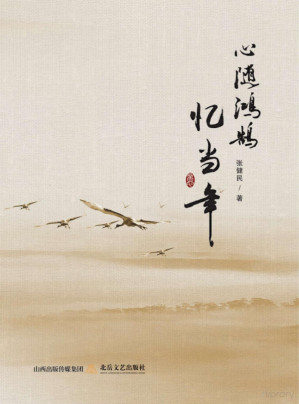 心随鸿鹄
忆当年
张健民/著
山西出版传媒集团 北岳文艺出版社